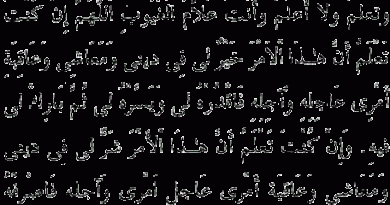 وتعلم ولا أعلم وأنت علام الغيوب اللهم إن كنت
تَعْلَمُ أَنَّ هَـٰذَا ٱلْأَمْرَ خَيْرٌ لِى فِى دِينِى وَمَعَاشِى وَعَاقِبَةِ
أَمْرِى عَاجِلِهِ وَآجِلِهِ فَٱقْدُرْهُ لِى وَيَسِّرْهُ لِى ثُمَّ بَارِكْ لِى
فِيهِ. وَإِنْ كُنْتَ تَعْلَمُ أَنَّ هَـٰذَا ٱلْأَمْرَ شَرٌّ لِى فِى دِينِى
وَمَعَاشِى وَعَاقِبَةِ أَمْرِى عَاجِلِ أَمْرِى وَآجِلِهِ فَٱصْرِفْهُ